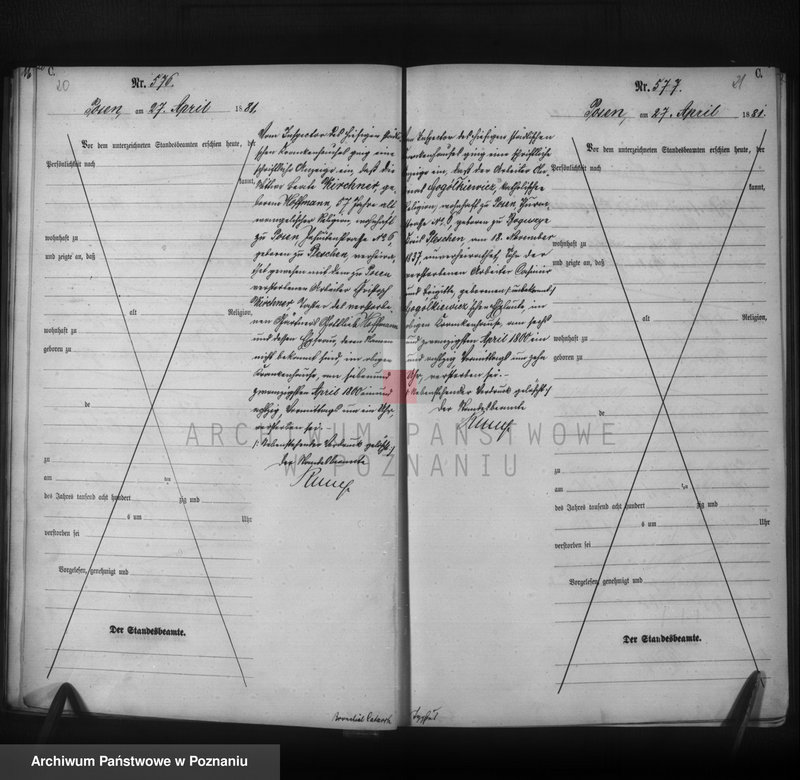 C.
20
Nr. 576.
Posen, am 27. April 1881.
Vor dem unterzeichneten Standesbeamten erschien heute, der
Persönlichkeit nach
kannt,
wohnhaft zu
und zeigte an, daß
alt Religion,
wohnhaft zu
geboren zu
de
zu
am ten
des Jahres tausend acht hundert zig und
um Uhr
verstorben sei
Vorgelesen, genehmigt und
Der Standesbeamte.
Vom Inspector des hiesigen städti-
schen Krankenhauses ging eine
schriftliche Anzeige ein, daß die
Kirchner, ge-
borene Hoffmann, 57 Jahre alt
evangelischer Religion, wohnhaft
zu Posen No 6
geboren zu Pleschen, verheira-
thet gewesen mit dem zu Posen
verstorbenen Arbeiter Christoph
Kirchner, Tochter des verstorbe-
nen Gottlieb Hoffmann
und dessen Ehefrau, deren Namen
nicht bekannt sind, im obigen
Krankenhause, am sieben und
zwanzigsten April 1800 ein und
achtzig, Vormittags um ein Uhr,
verstorben sei.
Nebenstehender Vordruck gelöscht
der Standesbeamte
Bronchial Catarrh
C.
21
Nr. 577.
Posen, am 27. April 1881.
Vor dem unterzeichneten Standesbeamten erschien heute, der
Persönlichkeit nach
kannt,
wohnhaft zu
und zeigte an, daß
alt Religion,
wohnhaft zu
geboren zu
de
zu
am ten
des Jahres tausend acht hundert zig und
um Uhr
verstorben sei
Vorgelesen, genehmigt und
Der Standesbeamte.
Vom Inspector des hiesigen städtischen
Krankenhauses ging eine schriftliche
Anzeige ein, daß der Arbeiter
Gogółkiewicz, katholischer
Religion, wohnhaft zu Posen
geboren zu
Kreis Pleschen, am 18. November
1837, unverheirathet, Sohn der
verstorbenen Arbeiter Casimir
und Brigitte, geborenen unbekannt
Gogółkiewicz'schen Eheleute, im
obigen Krankenhause, am sechs
und zwanzigsten April 1800 ein
und achtzig Vormittags um zehn
Uhr, verstorben sei.
Nebenstehender Vordruck gelöscht
der Standesbeamte
Typhus
ARCHIWUM PAŃSTWOWE
W POZNANIU
Archiwum Państwowe w Poznaniu